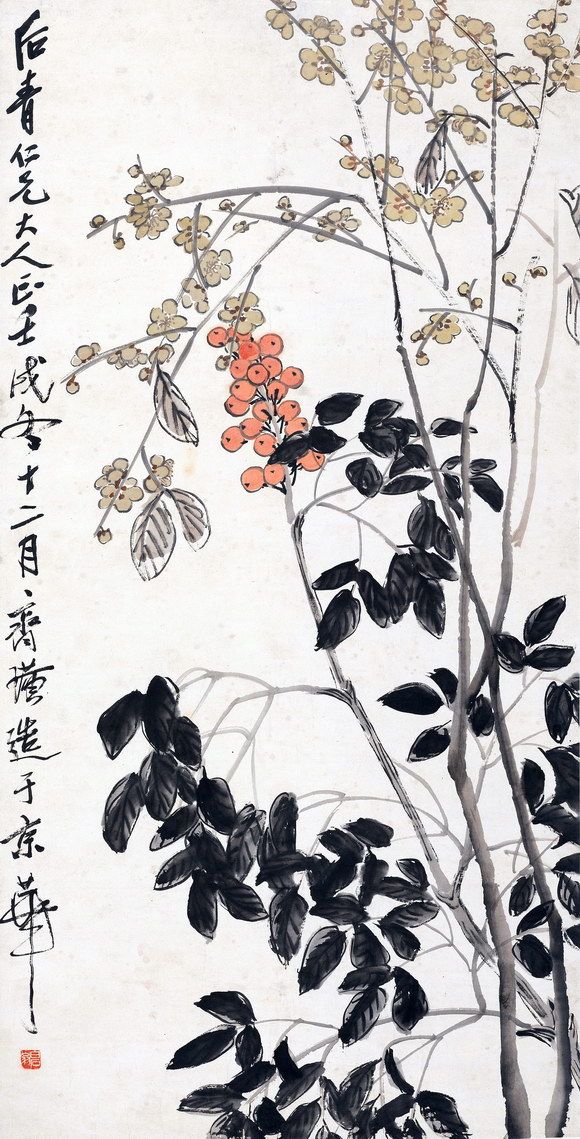 后青仁兄大人正壬戌冬十二月齐璜造于京华